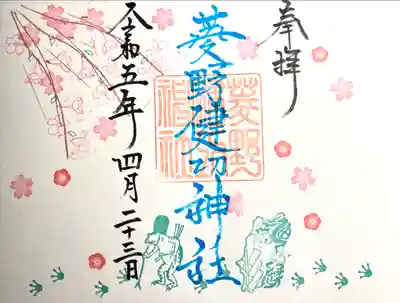 奉拝
菱野健功神社
令和五年四月二十三日
菱野
神社